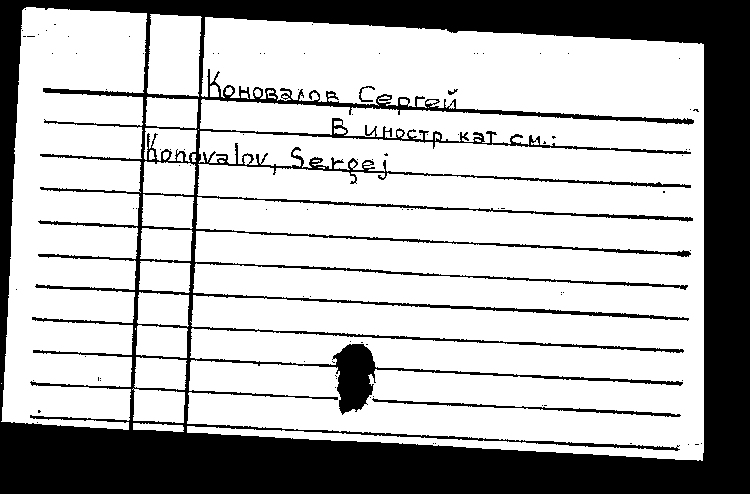 Коновалов, Сергей
В иностр. кат. см.:
Konovalov, Sergej